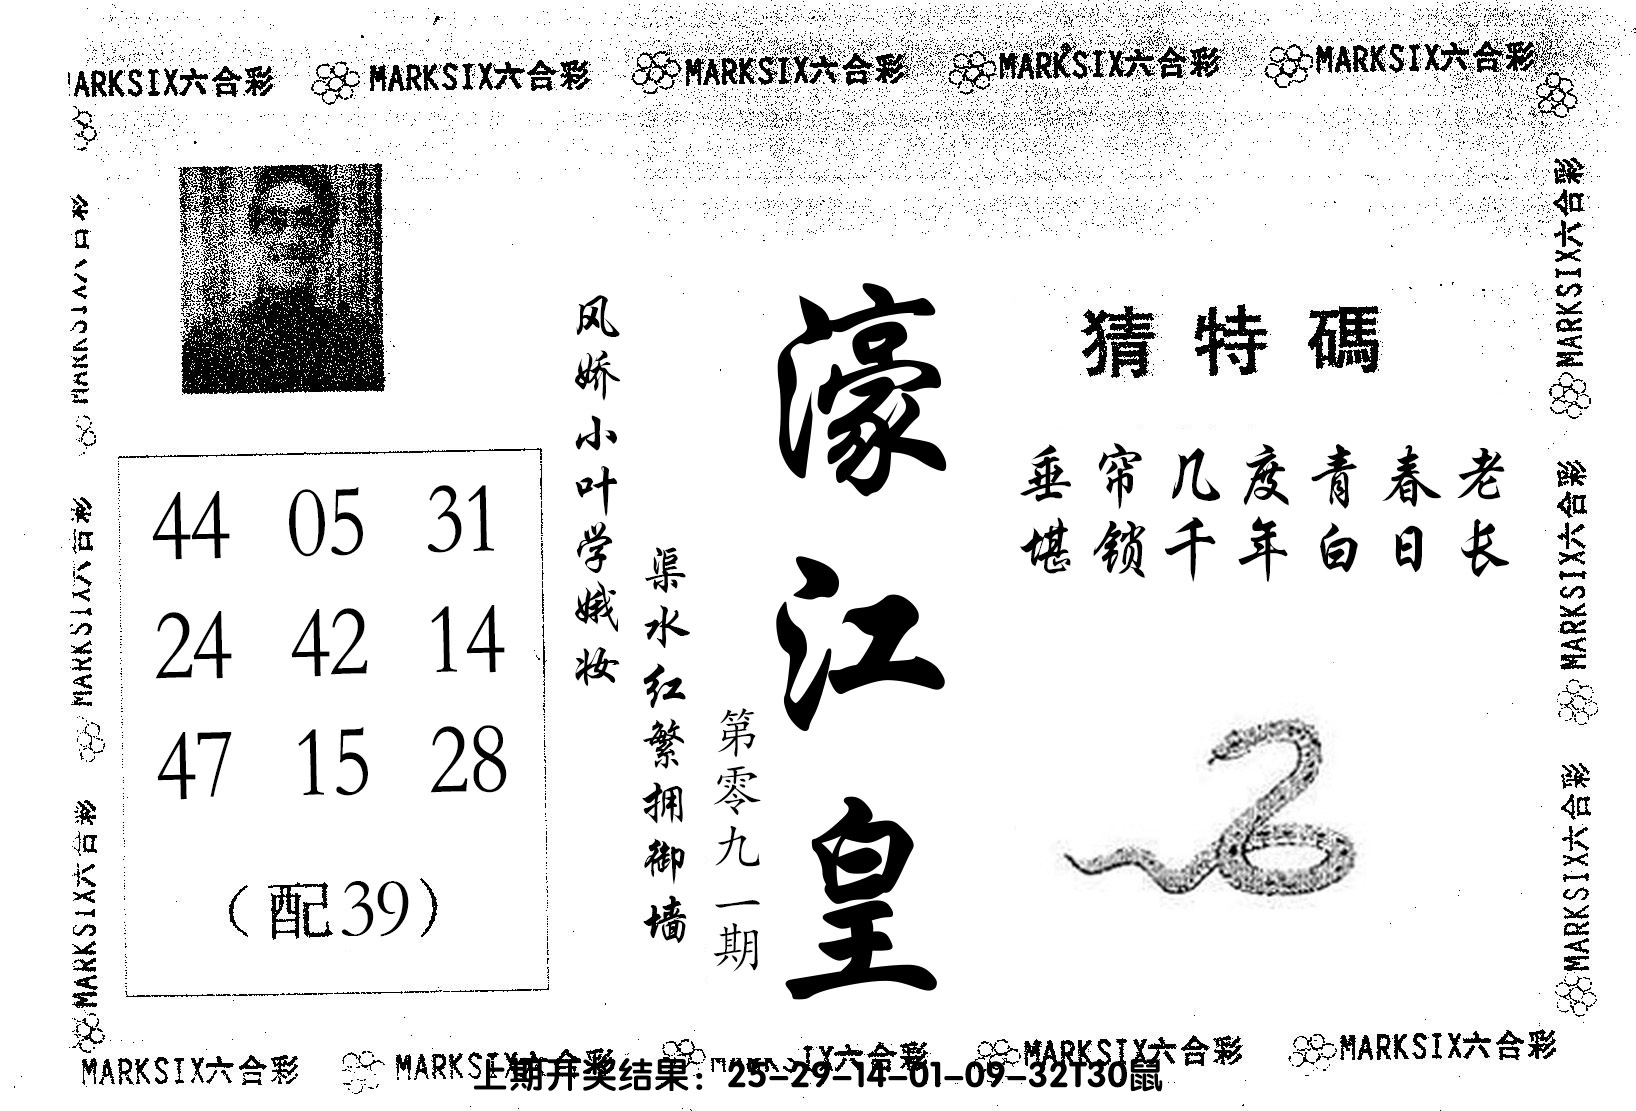 MARKSIX六合彩 MARKSIX六合彩 MARKSIX六合彩 MARKSIX六合彩 MARKSIX六合彩
猜特碼
垂帘几度青春老
堪锁千年白日长
濠江皇
第零九一期
风娇小叶学娥妆
渠水红繁拥御墙
44 05 31
24 42 14
47 15 28
（配39）
MARKSIX六合彩
MARKSIX六合彩
MARKSIX六合彩
MARKSIX六合彩
MARKSIX六合彩
MARKSIX六合彩
MARKSIX六合彩 MARKSIX六合彩 MARKSIX六合彩 MARKSIX六合彩 MARKSIX六合彩
上期开奖结果：25-29-14-01-09-32T30鼠